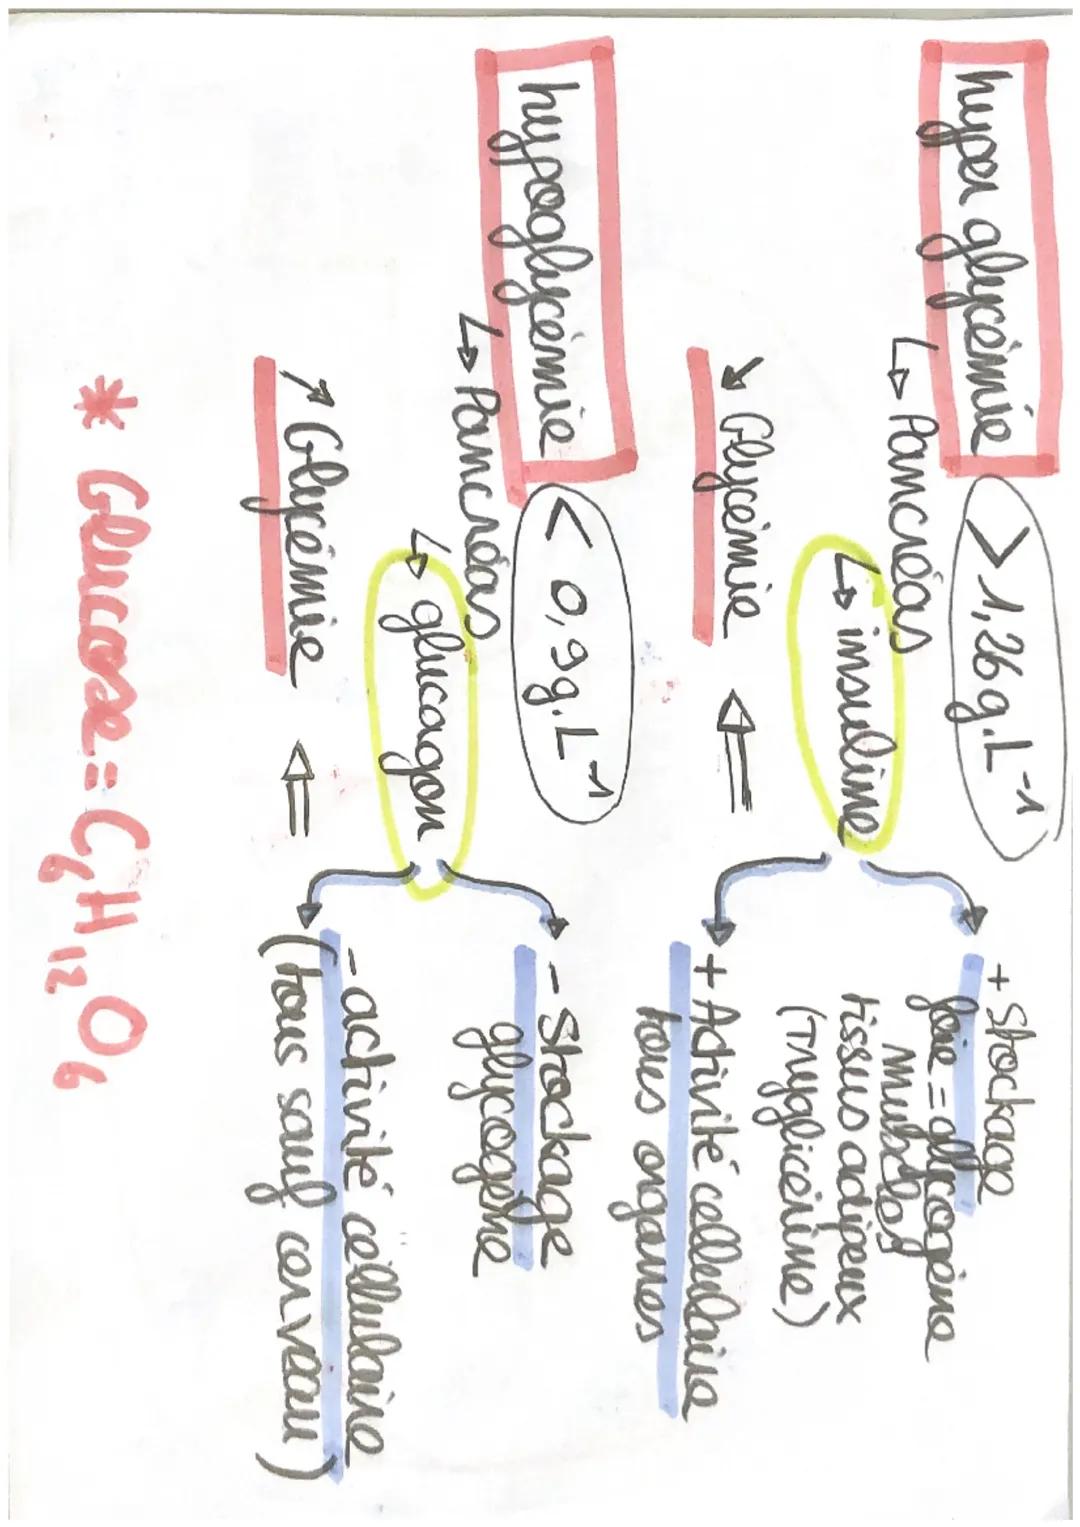 hyper glycémie > 1,26g.L⁻¹
↳ Pancréas
↳ insuline
+ Stockage
foie = glycogène
muscles
tissus adipeux
(Tryglicérine)
↘ Glycémie ⇐
+ Activité cellulaire
tous organes
hypoglycémie < 0,9g.L⁻¹
↳ Pancréas
↳ glucagon
- Stockage
glycogène
↗ Glycémie ⇐
- activité cellulaire
(tous sauf cerveau)
* Glucose = C₆H₁₂O₆